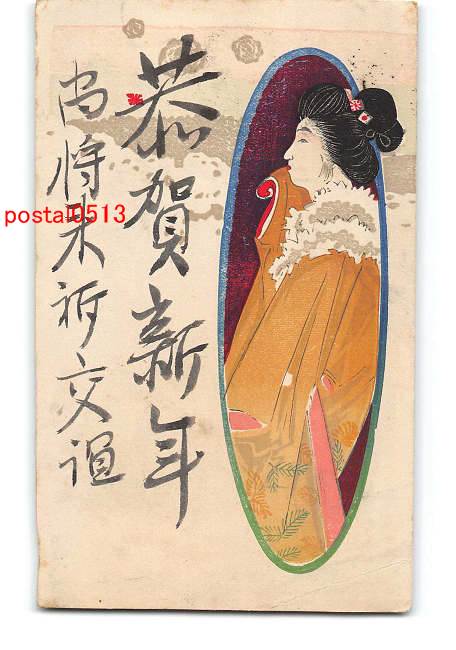 恭賀新年
尚将来祈交誼
postal0513